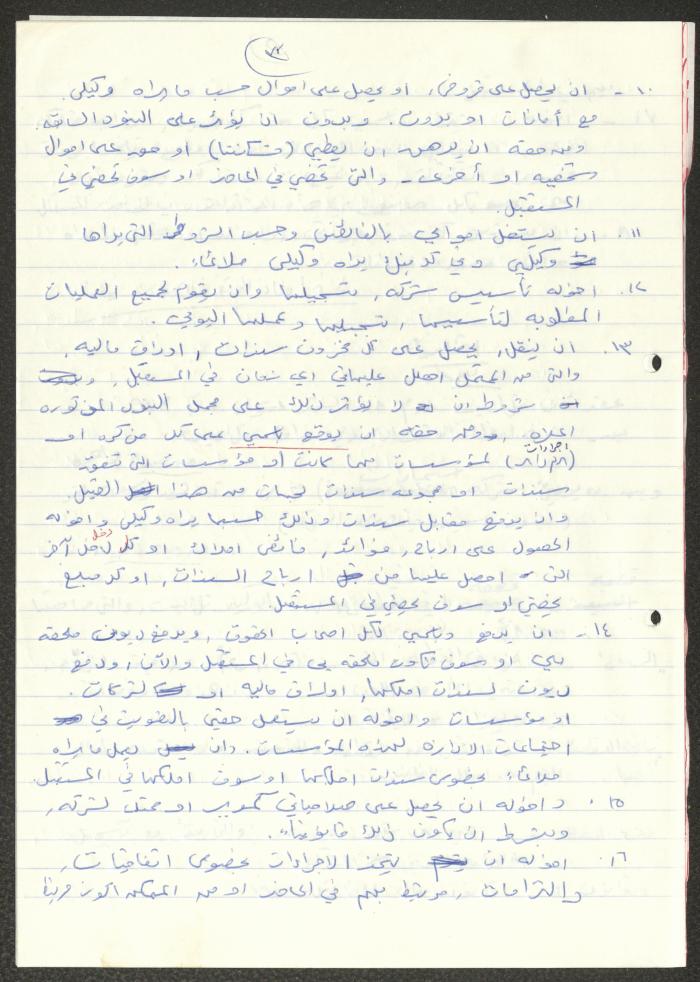 ١٠- ان يحصل على قروض، او يحصل على اموال حسب ما يراه وكيلي
مع أمانات او بدون. وبدون ان يؤثر على البنود السابقة.
ومن حقه ان يرهن ان يعطي (مشكنتا) او على اموال
شخصية او أخرى - والتي تخصني في الحاضر او سوف تخصني في
المستقبل.
١١. ان يستغل اموالي بالفائض وحسب الشروط التي يراها
وكيلي وفي كل بنك يراه وكيلي ملائماً.
١٢. اخوله تأسيس شركة، تسجيلها وان يقوم بجميع العمليات
المطلوبة لتأسيسها، تسجيلها وعملها اليومي.
١٣. ان ينقل، يحصل على كل مخزون سندات، اوراق مالية،
والتي من المحتمل احصل عليها في اي زمان في المستقبل،
شروط ان لا يؤثر ذلك على مجمل البنود المذكورة
اعلاه، ومن حقه ان يوقع باسمي على كل مذكرة او
اجراءات
لمؤسسات مهما كانت او مؤسسات التي تتفق
سندات او مجموعة سندات لجهات من هذا القبيل.
وان يدفع مقابل سندات وذلك حسبما يراه وكيلي واخوله
الحصول على ارباح، فوائد، فائض املاك او كل دخل آخر
التي احصل عليها من ارباح السندات، او كل مبلغ
يخصني او سوف يخصني في المستقبل.
١٤- ان يدفع وباسمي لكل اصحاب الحقوق، ويدفع ديون ملحقة
بي او سوف تكون ملحقة بي في المستقبل والآن، ودفع
ديون لسندات املكها، اوراق مالية او لشركات.
او مؤسسات واخوله ان يستعمل حقي بالتصويت في
اجتماعات الادارة لهذه المؤسسات. وان يعمل ما يراه
ملائماً بخصوص سندات املكها او سوف املكها في المستقبل.
١٥. واخوله ان يحصل على صلاحياتي كمدير او ممثل لشركة،
وبشرط ان يكون ذلك قانونياً.
١٦. اخوله ان يتخذ الاجراءات بخصوص اتفاقيات،
والتزامات، مرتبط بهم في الحاضر او من الممكن اكون مرتبطاً